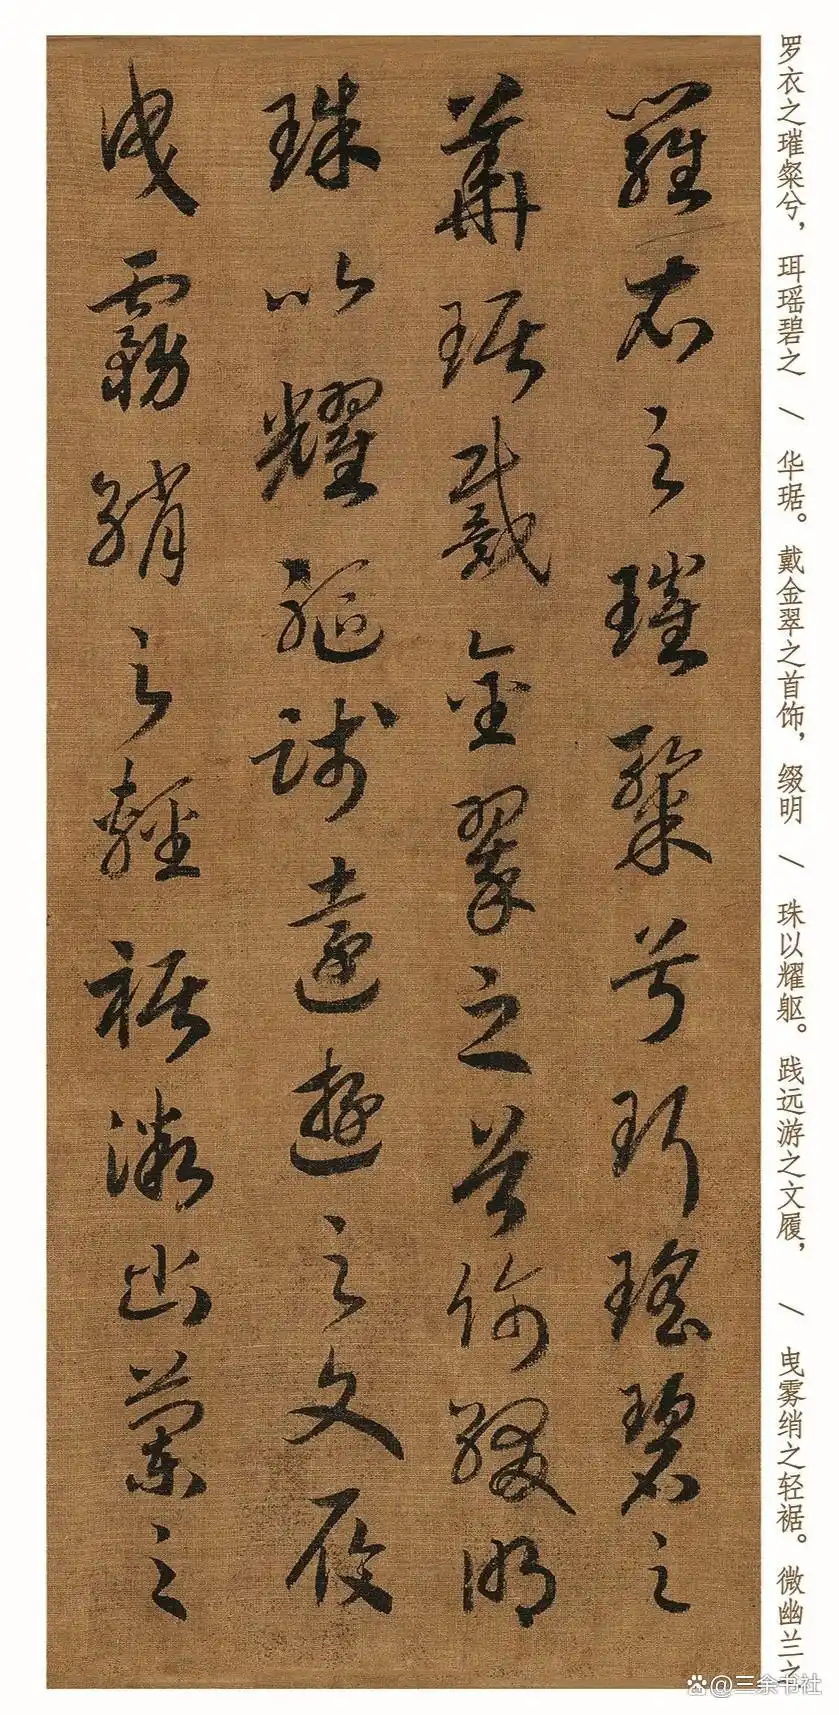 羅衣之璀粲兮珥瑤碧之
華琚戴金翠之首飾綴明
珠以耀軀踐遠遊之文履
曳霧綃之輕裾微幽蘭之
罗衣之璀粲兮，珥瑶碧之 \ 华琚。戴金翠之首饰，缀明 \ 珠以耀躯。践远游之文履， \ 曳雾绡之轻裾。微幽兰之
@三余书社